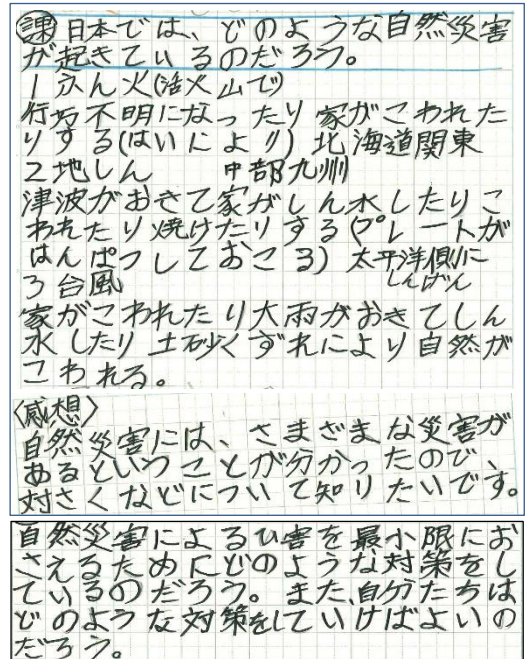 課日本では、どのような自然災害
が起きているのだろう。
1ふん火(活火山で)
行方不明になったり家がこわれた
りする(はいにより)北海道関東
2地しん 中部九州
津波がおきて家がしん水したりこ
われたり焼けたりする(プレートが
はんぱつしておこる)太平洋側に
しんげん
3台風
家がこわれたり大雨がおきてしん
水したり土砂くずれにより自然が
こわれる。
〈感想〉
自然災害には、さまざまな災害が
あるということが分かったので、
対さくなどについて知りたいです。
自然災害によるひ害を最小限にお
さえるためにどのような対策をし
ているのだろう。また、自分たちは
どのような対策をしていけばよいの
だろう。